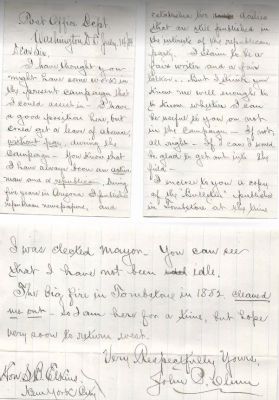 Post Office Dept.
Washington D.C. July 14/84
Dear Sir,
I have thought you
might have some work in
the present campaign that
I could assist in - I have
a good position here, but
could get a leave of absence,
without pay, during the
campaign - You know that
I have always been an active
man and a republican. During
five years in Arizona I published
republican newspapers, and
established two dailies
that are still published in
the interests of the republican
party. I claim to be a
fair writer and a fair
talker. But I think you
know me well enough to
know whether I can
be useful to you or not
in the campaign - If not
all right - If I can I would
be glad to get out into the
field -
I enclose to you a copy
of the "Bulletin" published
in Tombstone at the time
I was elected mayor - You can see
that I have not been idle.
The big fire in Tombstone in 1882 cleaned
me out - so I am here for a time, but hope
very soon to return west.
Very Respectfully Yours,
John P. Clum
Hon S.B. Elkins,
New York City